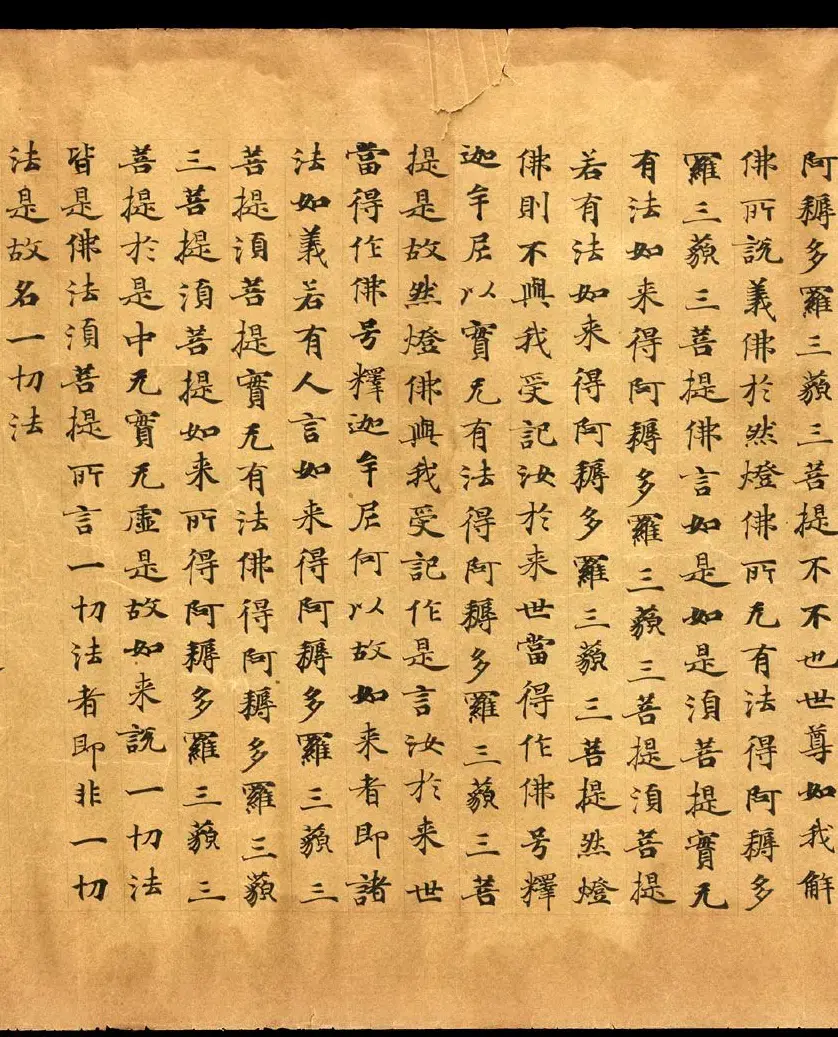 阿耨多羅三藐三菩提不不也世尊如我解
佛所説義佛於然燈佛所无有法得阿耨多
羅三藐三菩提佛言如是如是湏菩提實无
有法如来得阿耨多羅三藐三菩提湏菩提
若有法如来得阿耨多羅三藐三菩提然燈
佛則不與我受記汝於来世當得作佛号釋
迦牟尼以實无有法得阿耨多羅三藐三菩
提是故然燈佛與我受記作是言汝於来世
當得作佛号釋迦牟尼何以故如来者即諸
法如義若有人言如来得阿耨多羅三藐三
菩提湏菩提實无有法佛得阿耨多羅三藐
三菩提湏菩提如来所得阿耨多羅三藐三
菩提於是中无實无虛是故如来說一切法
皆是佛法湏菩提所言一切法者即非一切
法是故名一切法